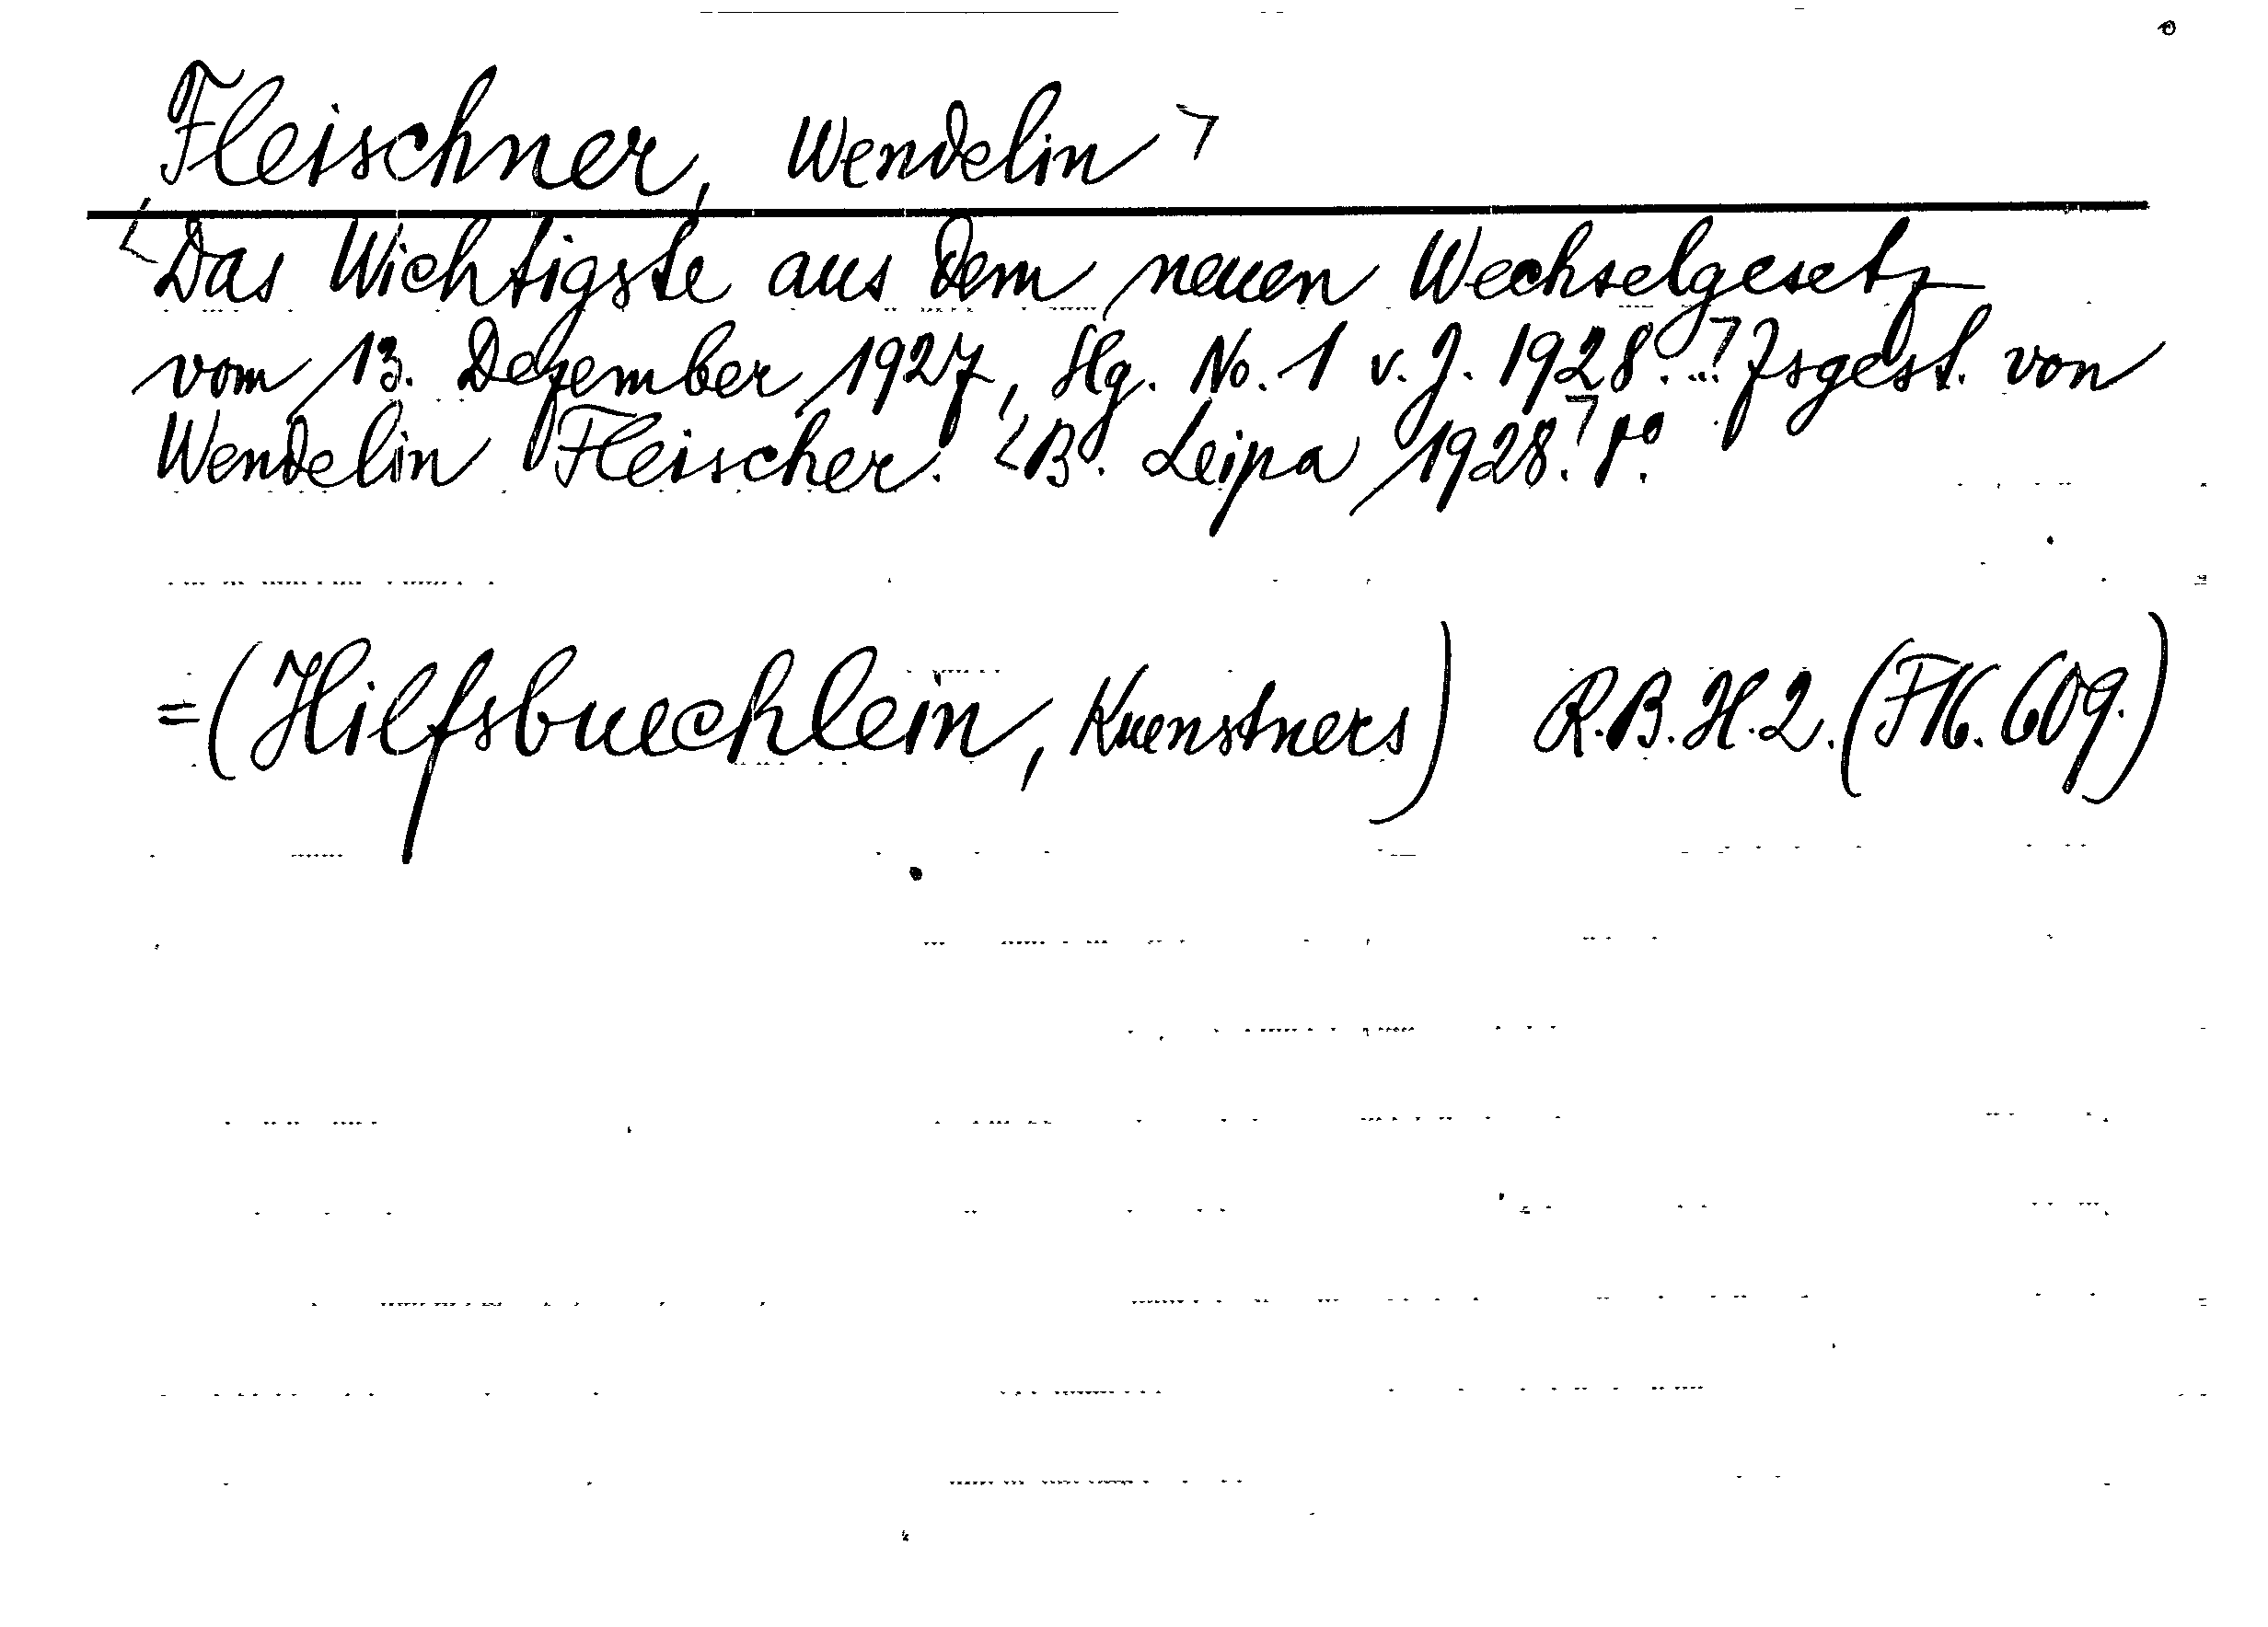 Fleischner, Wendelin
Das Wichtigste aus dem neuen Wechselgesetz
vom 13. Dezember 1927, Slg. No. 1 v. J. 1928. ... Zsgest. von
Wendelin Fleischer. B. Leipa 1928. 8°.
=(Hilfsbuechlein, Kuenstners) R.B.H.2. (F16.609.)